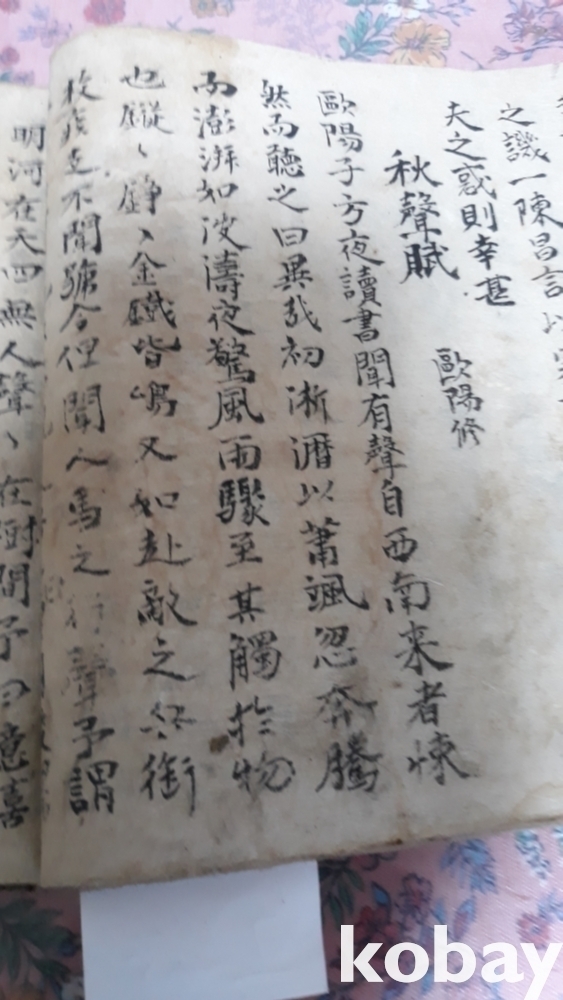 之譏一陳昌言以
夫之惑則幸甚
秋聲賦
歐陽修
歐陽子方夜讀書聞有聲自西南来者悚
然而聽之曰異哉初淅瀝以蕭颯忽奔騰
而澎湃如波濤夜驚風雨驟至其觸於物
也鏦〻錚〻金鐵皆鳴又如赴敵之兵銜
枚疾走不聞號令但聞人馬之行聲予謂
明河在天四無人聲〻在樹間予曰噫嘻
kobay